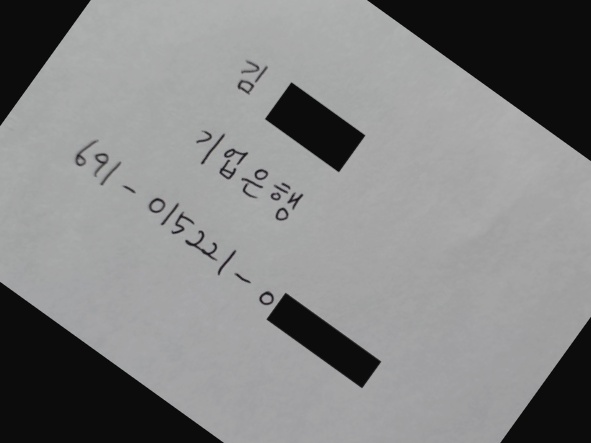 김
기업은행
691-015221-0